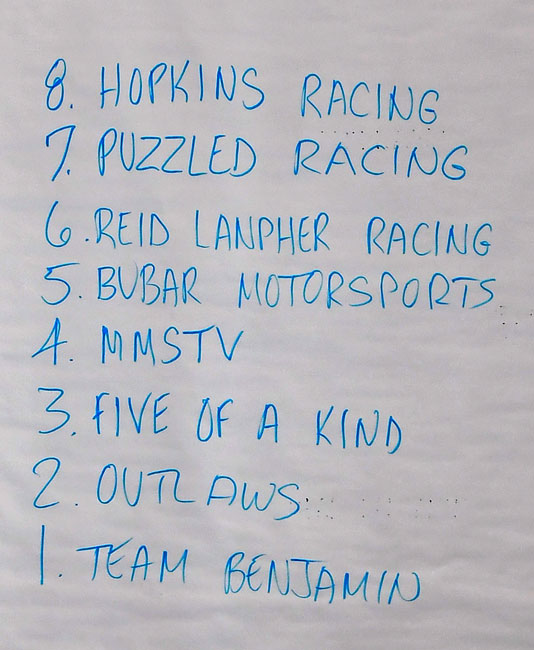 8. HOPKINS RACING
7. PUZZLED RACING
6. REID LANPHER RACING
5. BUBAR MOTORSPORTS
4. MMSTV
3. FIVE OF A KIND
2. OUTLAWS
1. TEAM BENJAMIN